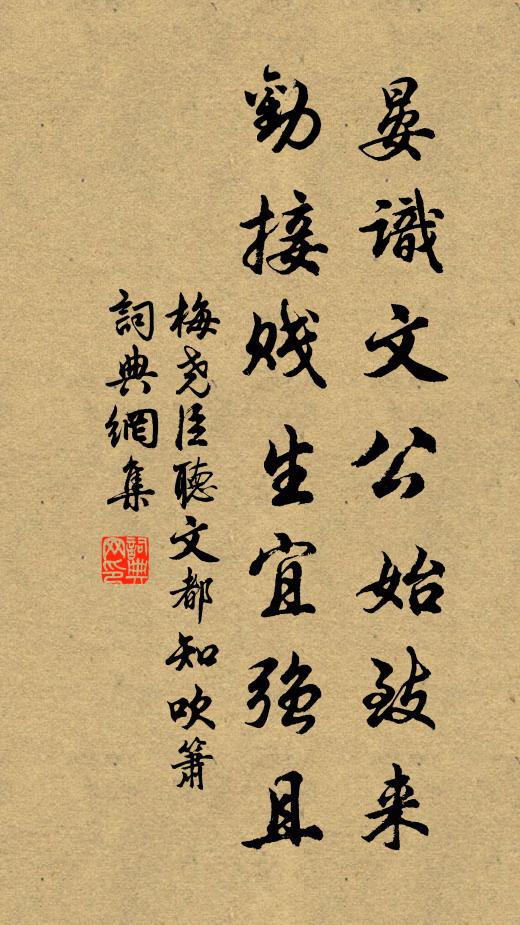 晏識文公始致来
勤接贱生宜强且
梅尧臣聽文都知吹簫
詞典網集
詞典
网印